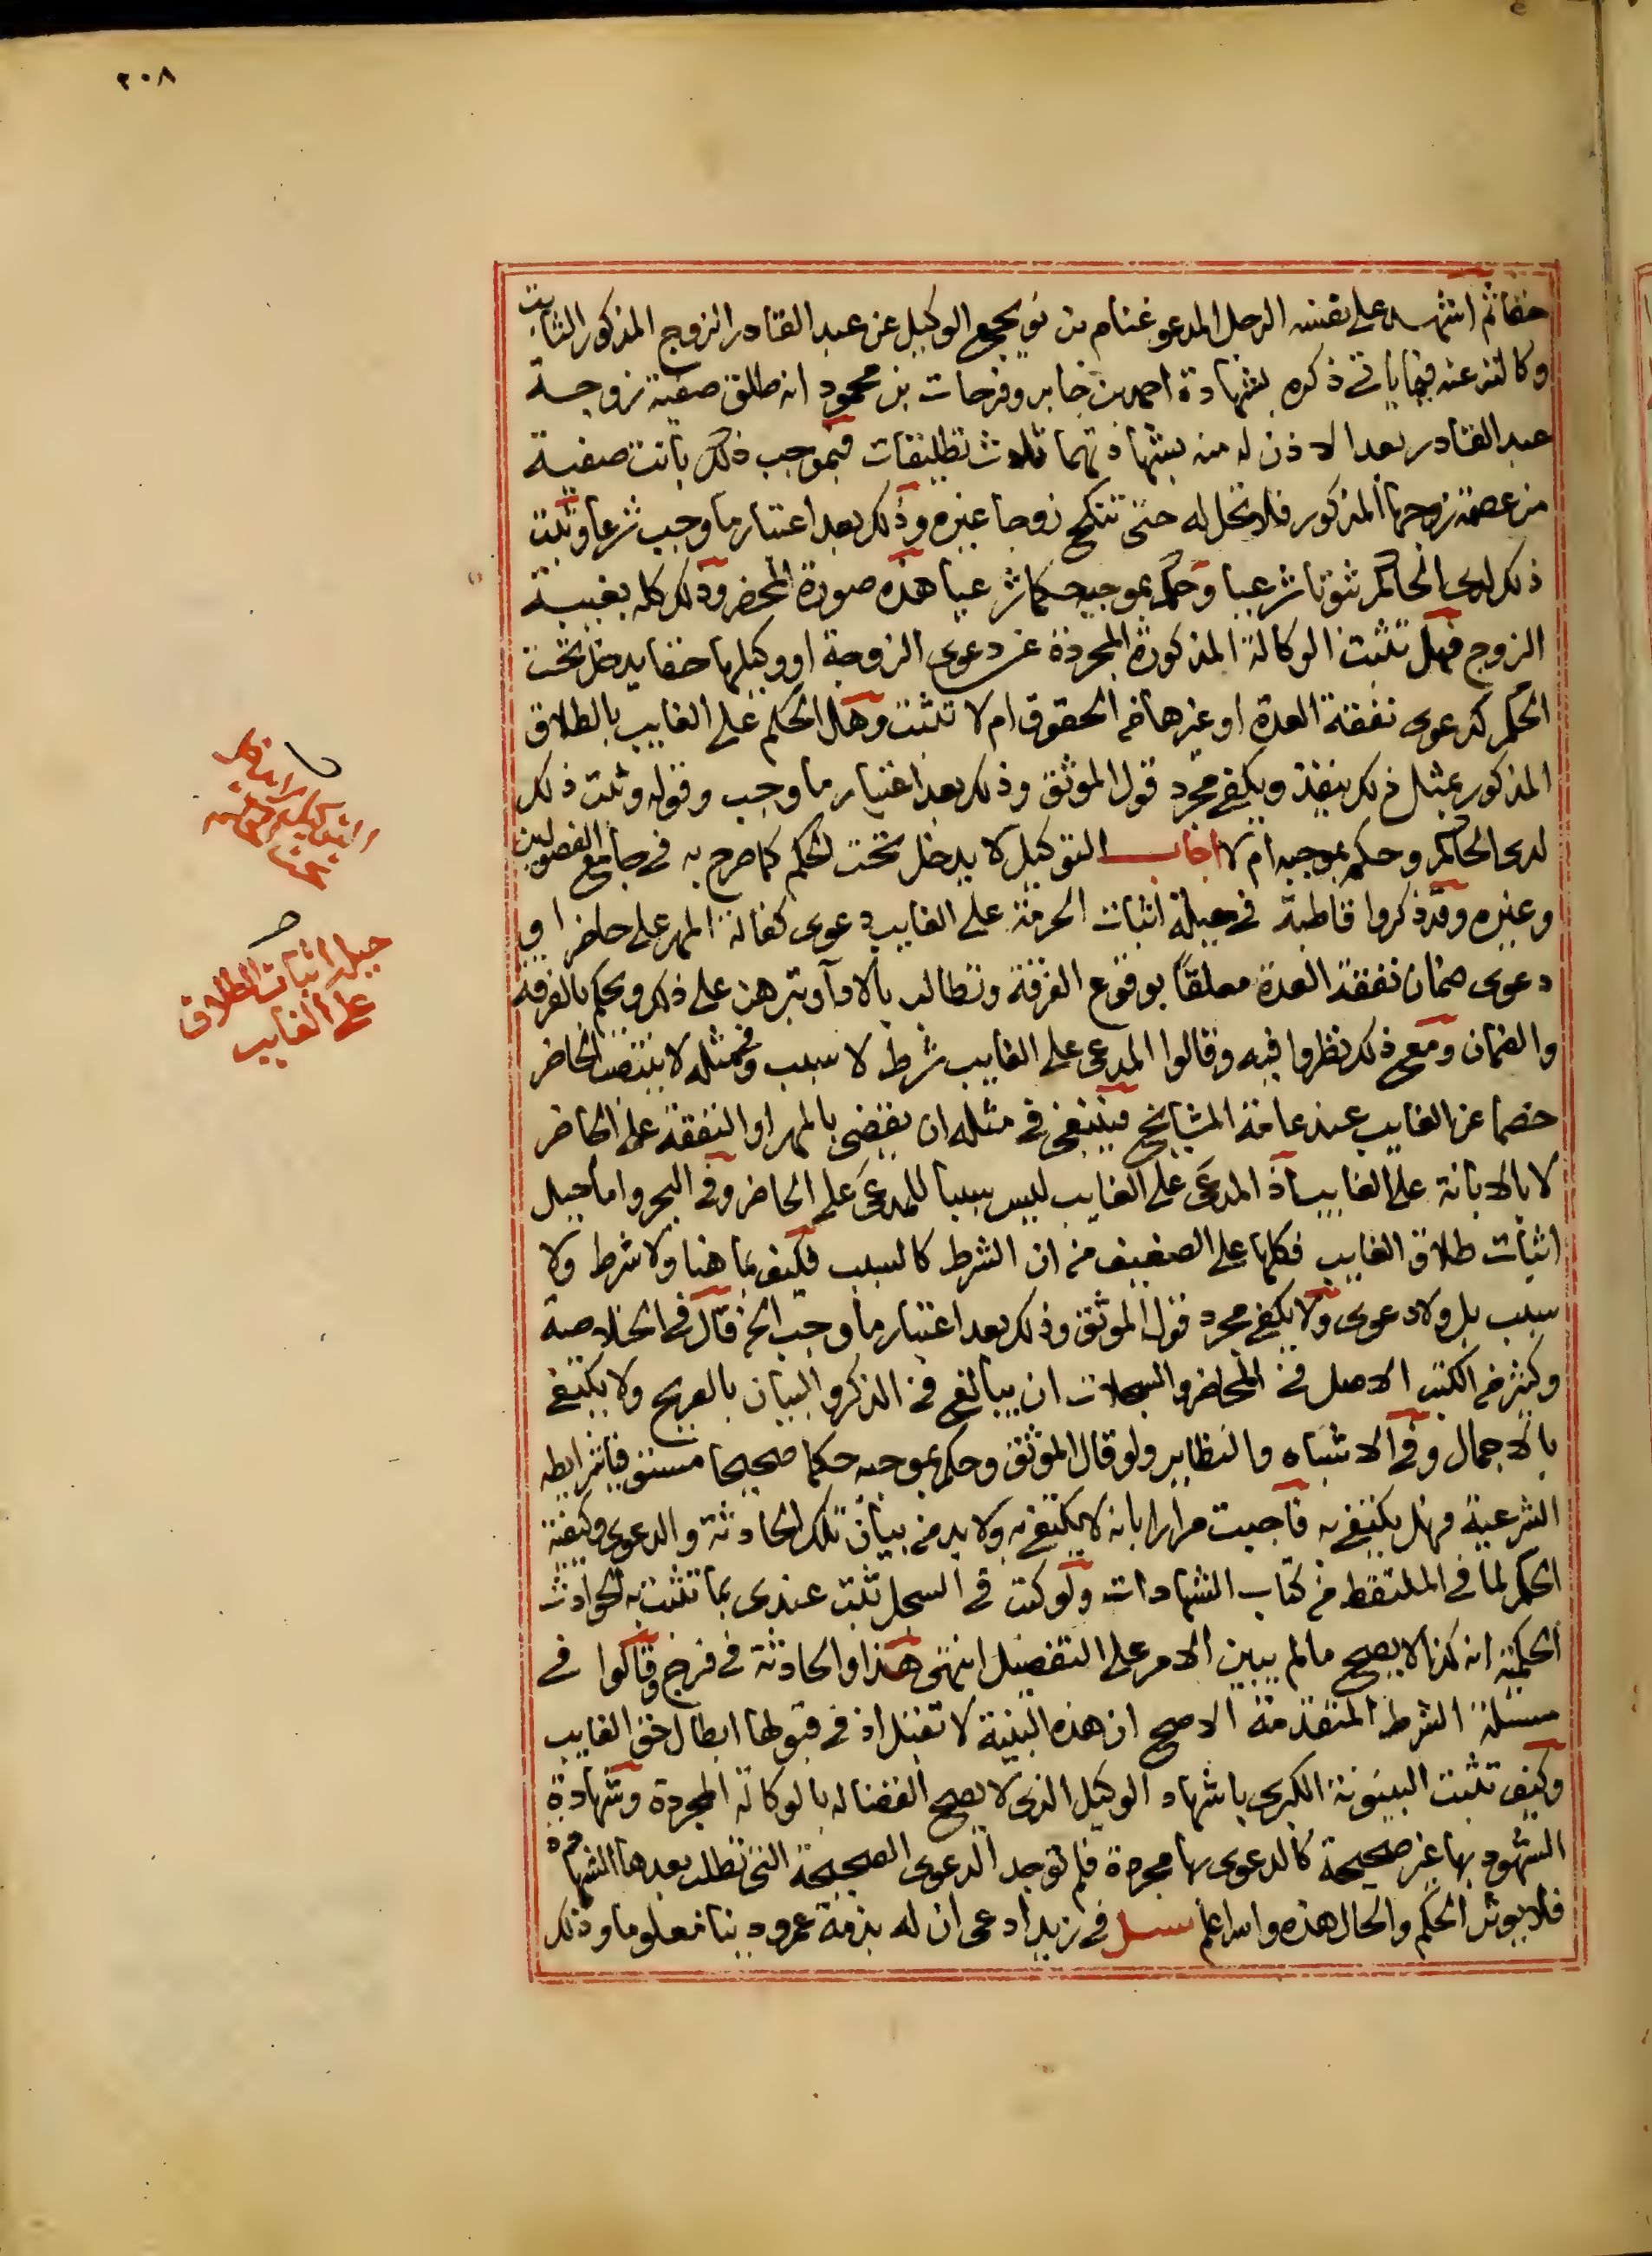 ٢٠٨
حقا ثم اشهد على نفسه الرجل المدعو غنام بن نويجع الوكيل عن عبد القادر الزوج المذكور الثابت
وكالته عنه فيما ياتي ذكره بشهادة احمد بن جابر وفرحات بن محمود انه طلق صفية زوجة
عبد القادر بعد الاذن له منه بشهادتهما ثلاث تطليقات فبموجب ذلك بانت صفية
من عصمة زوجها المذكور فلا تحل له حتى تنكح زوجا غيره وذلك بعد اعتبار ما وجب شرعا وثبت
ذلك لدى الحاكم ثبوتا شرعيا وحكم بموجبه حكما شرعيا هذه صورة المحضر وذلك كله بغيبة
الزوج فهل تثبت الوكالة المذكورة المجردة عن دعوى الزوجة او وكيلها حقا يدخل تحت
الحكم كدعوى نفقة العدة او غيرها من الحقوق ام لا تثبت وهل الحكم على الغايب بالطلاق
المذكور بمثل ذلك ينفذ ويكفي مجرد قول الموثق وذلك بعد اعتبار ما وجب وقوله وثبت ذلك
لدى الحاكم وحكم بموجبه ام لا اجاب التوكيل لا يدخل تحت الحكم كما صرح به في جامع الفصولين
وغيره وقد ذكروا قاطبة في حيلة اثبات الحرمة على الغايب دعوى كفالة المهر على حاضر او
دعوى ضمان نفقة العدة معلقا بوقوع الفرقة وتطالبه بالاداء وتبرهن على ذلك ويحكم بالفرقة
والضمان ومع ذلك نظروا فيه وقالوا المدعى على الغايب شرط لا سبب وفي مثله لا ينتصب الحاضر
خصما عن الغايب عند عامة المشايخ فينبغي في مثله ان يقضى بالمهر او النفقة على الحاضر
لا بالابانة على الغايب اذ المدعى على الغايب ليس سببا للمدعى على الحاضر وفي البحر واما حيل
اثبات طلاق الغايب فكلها على الضعيف من ان الشرط كالسبب فكيف بما هنا ولا شرط ولا
سبب بل ولا دعوى ولا يكفي مجرد قول الموثق وذلك بعد اعتبار ما وجب الخ قال في الخلاصة
وكثير من الكتب الاصل في المحاضر والسجلات ان يبالغ في الذكر والبيان بالصريح ولا يكتفى
بالاجمال وفي الاشباه والنظاير ولو قال الموثق وحكم بموجبه حكما صحيحا مستوفيا شرايطه
الشرعية فهل يكتفى به فاجبت مرارا بانه لا يكتفى به ولا بد من بيان تلك الحادثة والدعوى وكيفية
الحكم لما في الملتقط من كتاب الشهادات ولو كتب في السجل ثبت عندي بما تثبت به الحوادث
الحكمية انه كذا لا يصح ما لم يبين الامر على التفصيل انتهى هذا والحادثة في فرج وقالوا في
مسئلة الشرط المتقدمة الاصح ان هذه البينة لا تقبل اذ في قبولها ابطال حق الغايب
وكيف تثبت البينونة الكبرى باشهاد الوكيل الذي لا يصح القضا له بالوكالة المجردة وشهادة
الشهود بها غير صحيحة كالدعوى بها مجردة فلم توجد الدعوى الصحيحة التي تطلب بعدها الشهادة
فلا يوثر الحكم والحال هذه والله اعلم سئل في زيد ادعى ان له بذمة عمرو دينا معلوما وذلك
التوكيل لا يدخل
تحت
حيلة اثبات الطلاق
على الغايب